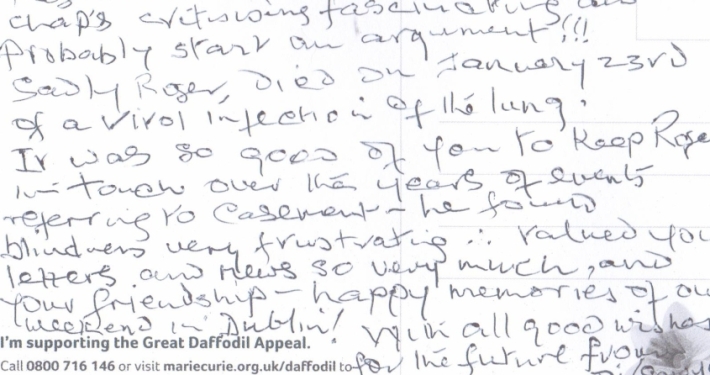 chap's critising fascinating an
Probably start an argument!!!
Sadly Roger, Died on January 23rd
of a viral infection of the lung.
It was so good of you to keep Roge
in touch over the years of events
referring to Casement - he found
blindness very frustrating ∴ valued you
letters and news so very much, and
your friendship - happy memories of ou
weekend in Dublin! With all good wishes
I'm supporting the Great Daffodil Appeal.
for the future from
Call 0800 716 146 or visit mariecurie.org.uk/daffodil to